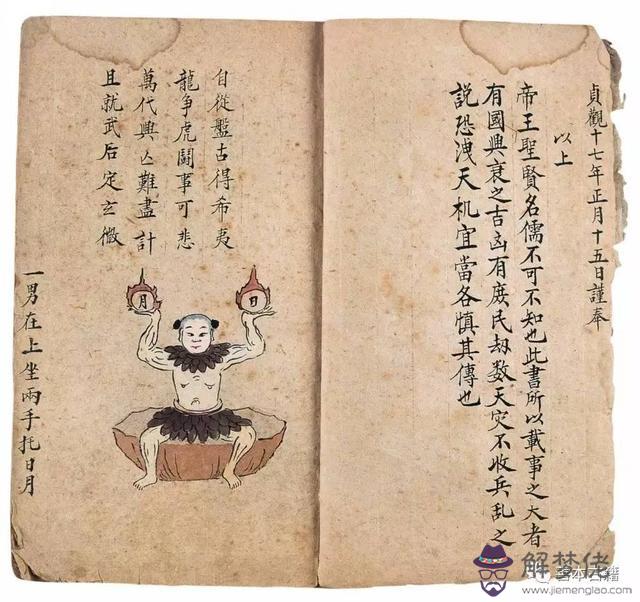 貞觀十七年正月十五日謹奉
以上
帝王聖賢名儒不可不知也此書所以載事之大者
有國興衰之吉凶有庶民劫数天灾不收兵乱之
説恐洩天机宜當各慎其傳也
自從盤古得希夷
龍爭虎鬪事可悲
萬代興亡難盡計
且就武后定玄微
日
月
一男在上坐兩手托日月
解梦佬
善本古籍
www.jiemenglao.com